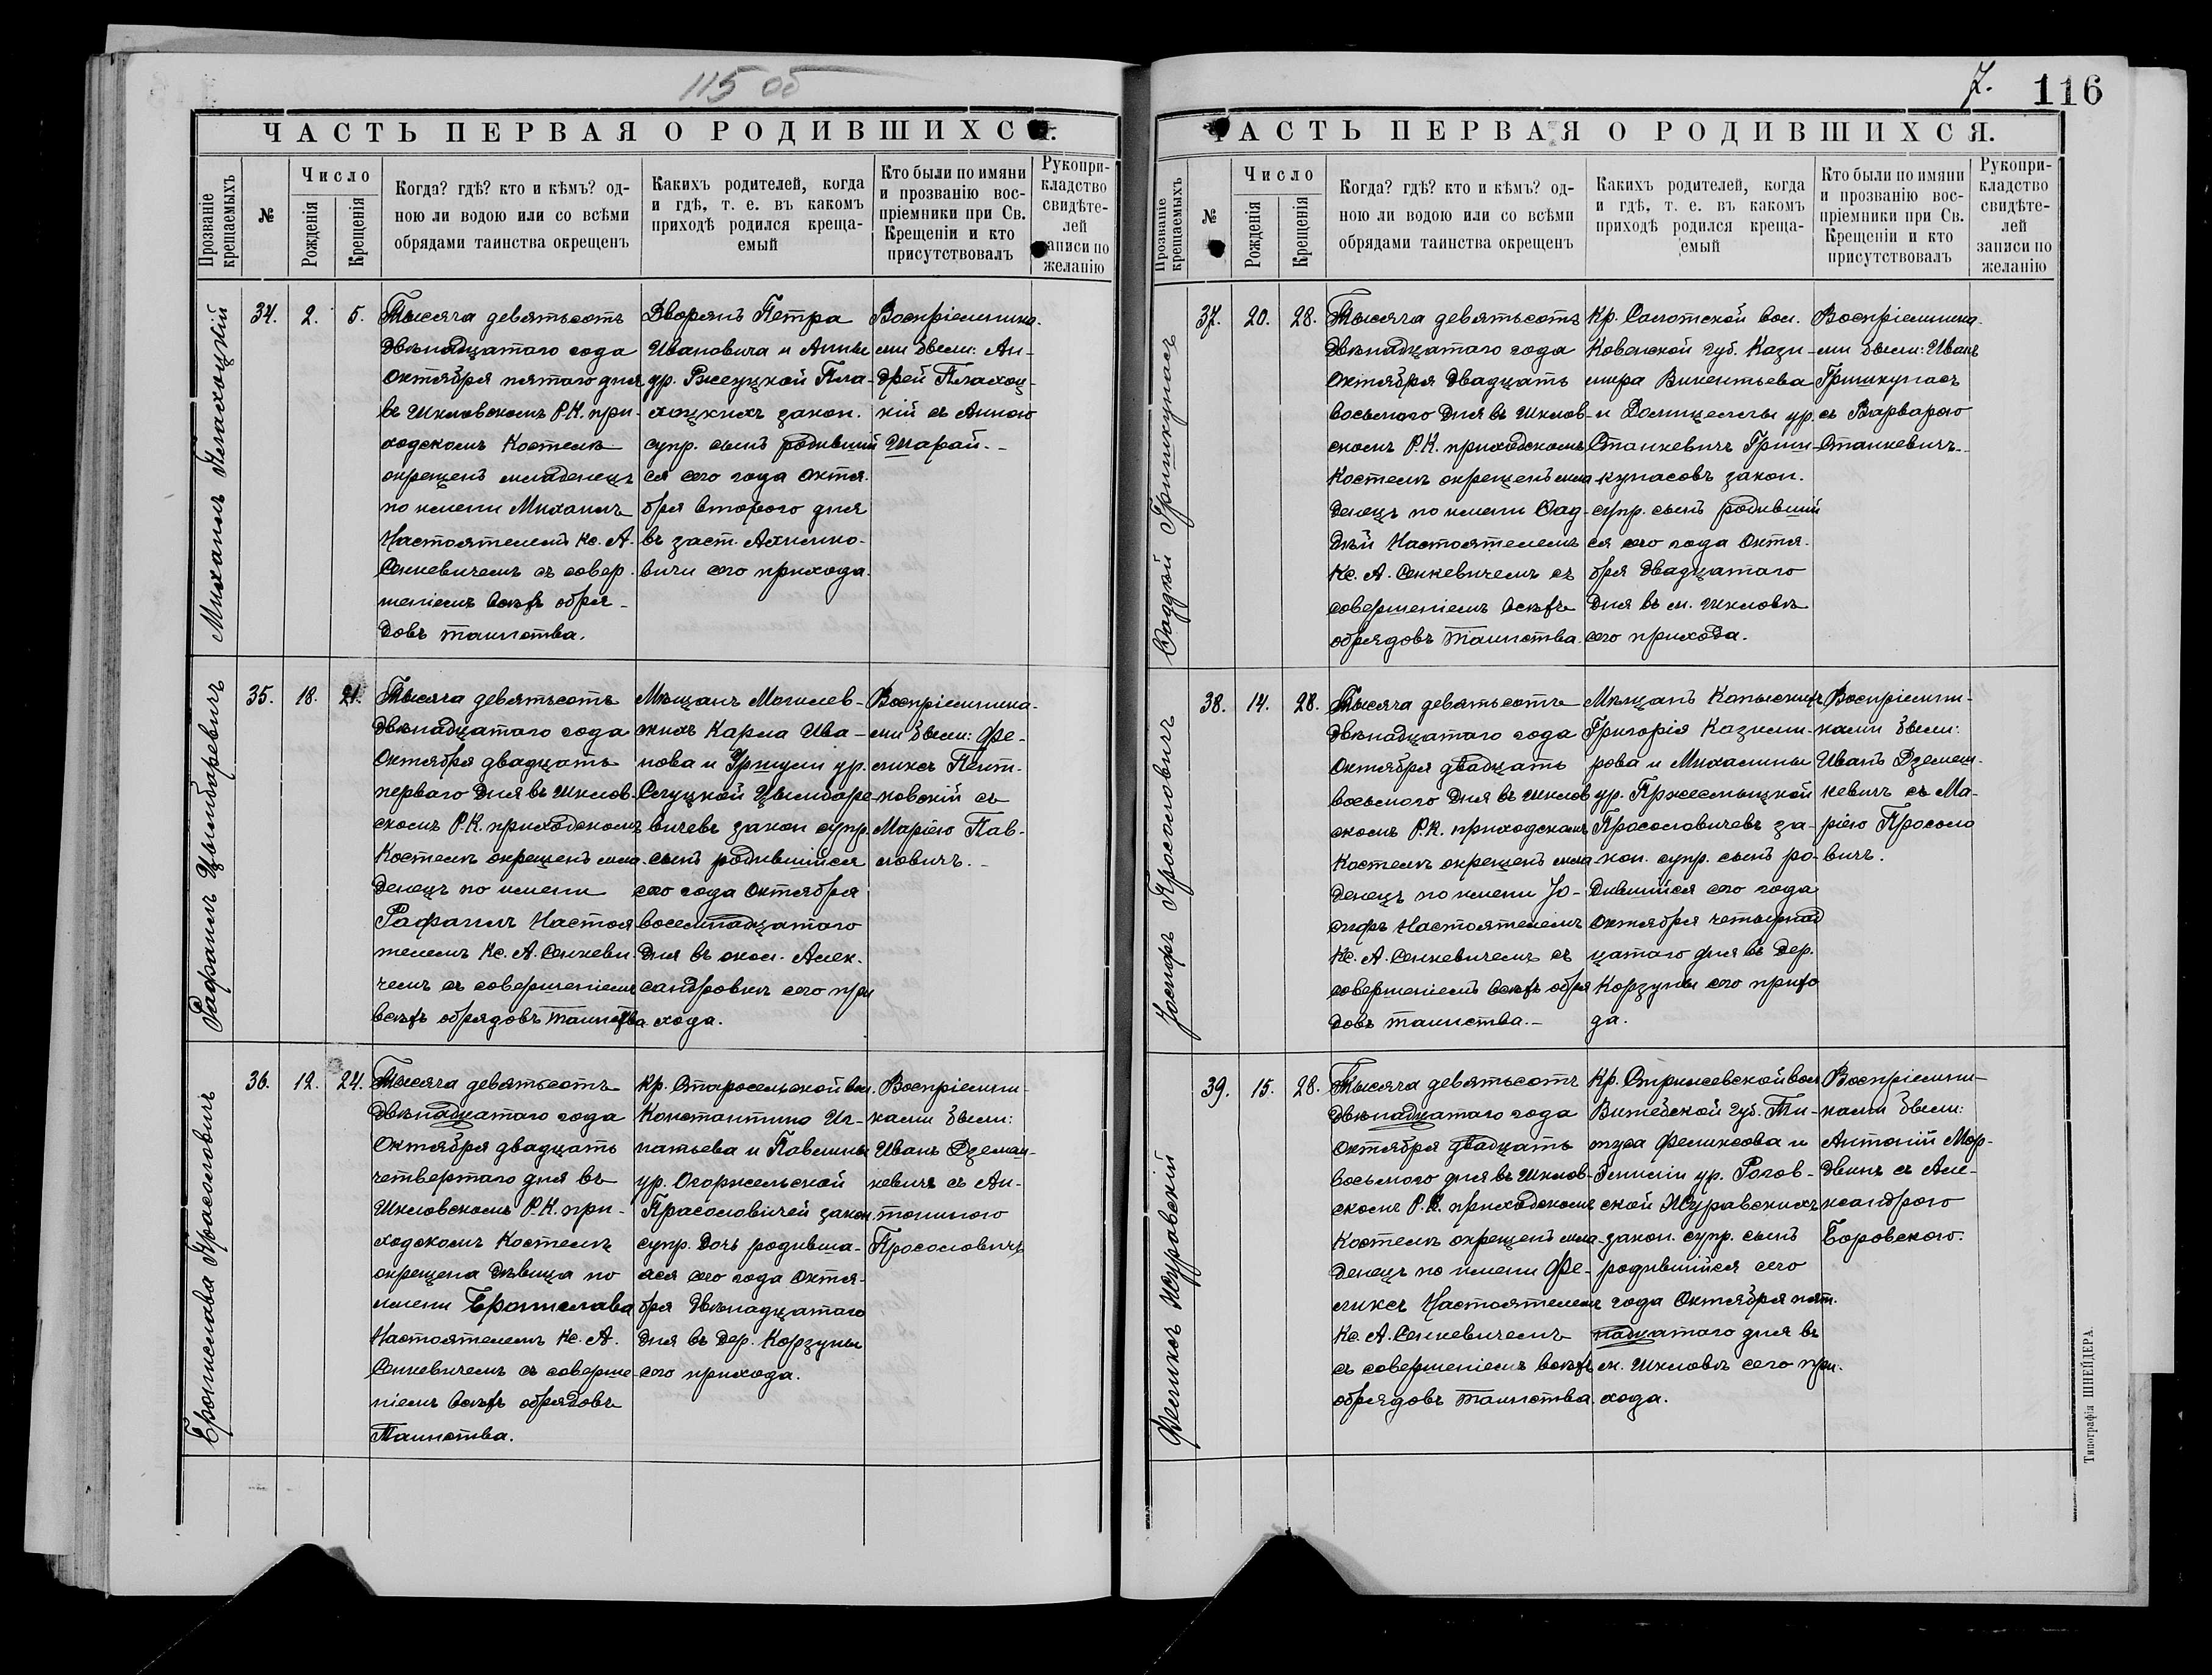 115 об
ЧАСТЬ ПЕРВАЯ О РОДИВШИХСЯ.
Прозваніе крещаемыхъ
№
Число
Рожденія
Крещенія
Когда? гдѣ? кто и кѣмъ? од-
ною ли водою или со всѣми
обрядами таинства окрещенъ
Какихъ родителей, когда
и гдѣ, т. е. въ какомъ
приходѣ родился креща-
емый
Кто были по имяни
и прозванію вос-
пріемники при Св.
Крещеніи и кто
присутствовалъ
Рукопри-
кладство
свидѣте-
лей
записи по
желанію
Михаилъ Плахоцкій
34.
2.
5.
Тысяча девятьсотъ
двѣнадцатаго года
Октября пятаго дня
въ Шкловскомъ Р.К. при-
ходскомъ Костелѣ
окрещенъ младенецъ
по имени Михаилъ
Настоятелемъ Кс. А.
Сенкевичемъ съ совер-
шеніемъ всѣхъ обря-
довъ таинства.
Дворянъ Петра
Ивановича и Анны
ур. Ржецкой Пла-
хоцкихъ закон.
супр. сынъ родивший
ся сего года Октя.
бря втораго дня
въ заст. Ахимко-
вичи сего прихода.
Воспріемника-
ми были: Ан-
дрей Плахоц-
кій съ Анною
Шарай.-
Рафаилъ Цымбаревичъ
35.
18.
21.
Тысяча девятьсотъ
двѣнадцатаго года
Октября двадцать
перваго дня въ Шклов-
скомъ Р.К. приходскомъ
Костелѣ окрещенъ мла-
денецъ по имени
Рафаилъ Настоя
телемъ Кс. А. Сенкеви-
чемъ съ совершеніемъ
всѣхъ обрядовъ таинства
Мѣщанъ Могилев-
скихъ Карла Ива-
нова и Уршули ур.
Слуцкой Цымбаре-
вичевъ закон супр.
сынъ родившійся
сего года Октября
восемнадцатаго
дня въ окол. Алек-
сандровкѣ сего при
хода.
Воспріемника-
ми были: Фе-
ликсъ Пент-
ковскій съ
Маріею Пав-
ловичъ.-
Бронислава Прасоловичъ
36.
12.
24.
Тысяча девятьсотъ
двѣнадцатаго года
Октября двадцать
четвертаго дня въ
Шкловскомъ Р.К. при-
ходскомъ Костелѣ
окрещена дѣвица по
имени Бронислава
Настоятелемъ Кс. А.
Сенкевичемъ съ соверше-
ніемъ всѣхъ обрядовъ
Таинства.
Кр. Старосельской вол.
Константина Иг-
натьева и Павлины
ур. Огоржельской
Прасоловичей закон
супр. дочь родивша-
яся сего года Октя-
бря двѣнадцатаго
дня въ дер. Корзуны
сего прихода.
Воспріемни-
ками были:
Иванъ Дземеш-
кевичъ съ Ан-
тониною
Прасоловичъ
7.
116
ЧАСТЬ ПЕРВАЯ О РОДИВШИХСЯ.
Прозваніе крещаемыхъ
№
Число
Рожденія
Крещенія
Когда? гдѣ? кто и кѣмъ? од-
ною ли водою или со всѣми
обрядами таинства окрещенъ
Какихъ родителей, когда
и гдѣ, т. е. въ какомъ
приходѣ родился креща-
емый
Кто были по имяни
и прозванію вос-
пріемники при Св.
Крещеніи и кто
присутствовалъ
Рукопри-
кладство
свидѣте-
лей
записи по
желанію
Фаддѣй Гришкупасъ
37.
20.
28.
Тысяча девятьсотъ
двѣнадцатаго года
Октября двадцать
восьмаго дня въ Шклов-
скомъ Р.К. приходскомъ
Костелѣ окрещенъ мла-
денецъ по имени Фад-
дѣй Настоятелемъ
Кс. А. Сенкевичемъ съ
совершеніемъ всѣхъ
обрядовъ Таинства.
Кр. Салотской вол.
Ковенской губ. Кази-
мира Викентьева
и Домицелы ур.
Станкевичъ Гриш-
купасовъ закон.
супр. сынъ родивший
ся сего года Октя-
бря двадцатаго
дня въ м. Шкловѣ
сего прихода.
Воспріемника-
ми были: Иванъ
Гришкупасъ
съ Варварою
Станкевичъ.-
Іосифъ Прасоловичъ
38.
14.
28.
Тысяча девятьсотъ
двѣнадцатаго года
Октября двадцать
восьмого дня въ Шклов
скомъ Р.К. приходскомъ
Костелѣ окрещенъ мла-
денецъ по имени Іо-
сифъ Настоятелемъ
Кс. А. Сенкевичемъ съ
совершеніемъ всѣхъ обря
довъ таинства.-
Мѣщанъ Копысскихъ
Григорія Казими-
рова и Михалины
ур. Пржесмыцкой
Прасоловичевъ за-
кон. супр. сынъ ро-
дившійся сего года
Октября четырнад
цатаго дня въ дер.
Корзуны сего прихо
да.
Воспріемни-
ками были:
Иванъ Дземеш-
кевичъ съ Ма-
ріею Прасоло
вичъ.
Феликсъ Журавскій
39.
15.
28.
Тысяча девятьсотъ
двѣнадцатаго года
Октября двадцать
восьмого дня въ Шклов-
скомъ Р.К. приходскомъ
Костелѣ окрещенъ мла-
денецъ по имени Фе-
ликсъ Настоятелемъ
Кс. А. Сенкевичемъ
съ совершеніемъ всѣхъ
обрядовъ таинства.
Кр. Стрижевской вол
Витебской губ. Ти-
туса Феликсова и
ур. Рогов-
ской Журавскихъ
закон. супр. сынъ
родившійся сего
года Октября пят-
надцатаго дня въ
м. Шкловѣ сего при-
хода.
Воспріемни-
ками были:
Антоній Мор-
двинъ съ Але-
ксандрою
Боровскою.
Типографія ШНЕЙДЕРА.